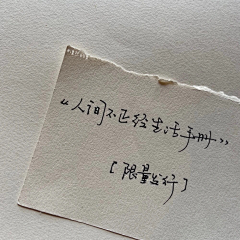 “人间不正经生活手册”
[限量发行]